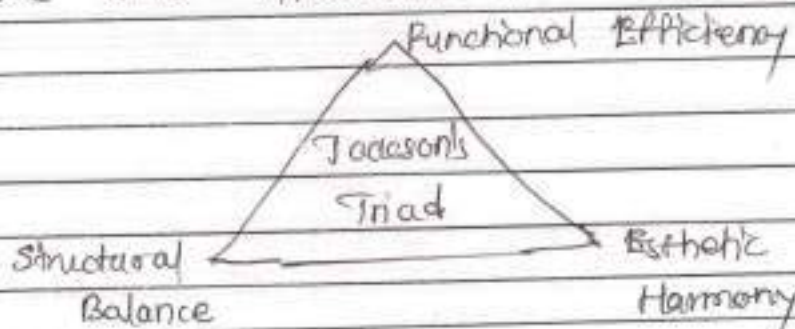 Functional Efficiency
Jacason's
Triad
Structural
Balance
Esthetic
Harmony